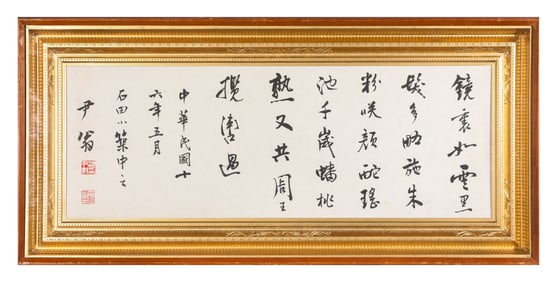 鏡裏如雲黑
髮多略施朱
粉咲顏酡瑤
池千歲蟠桃
熟又共周王
攬轡過
中華民國十
六年五月
石田小築中之
尹翁